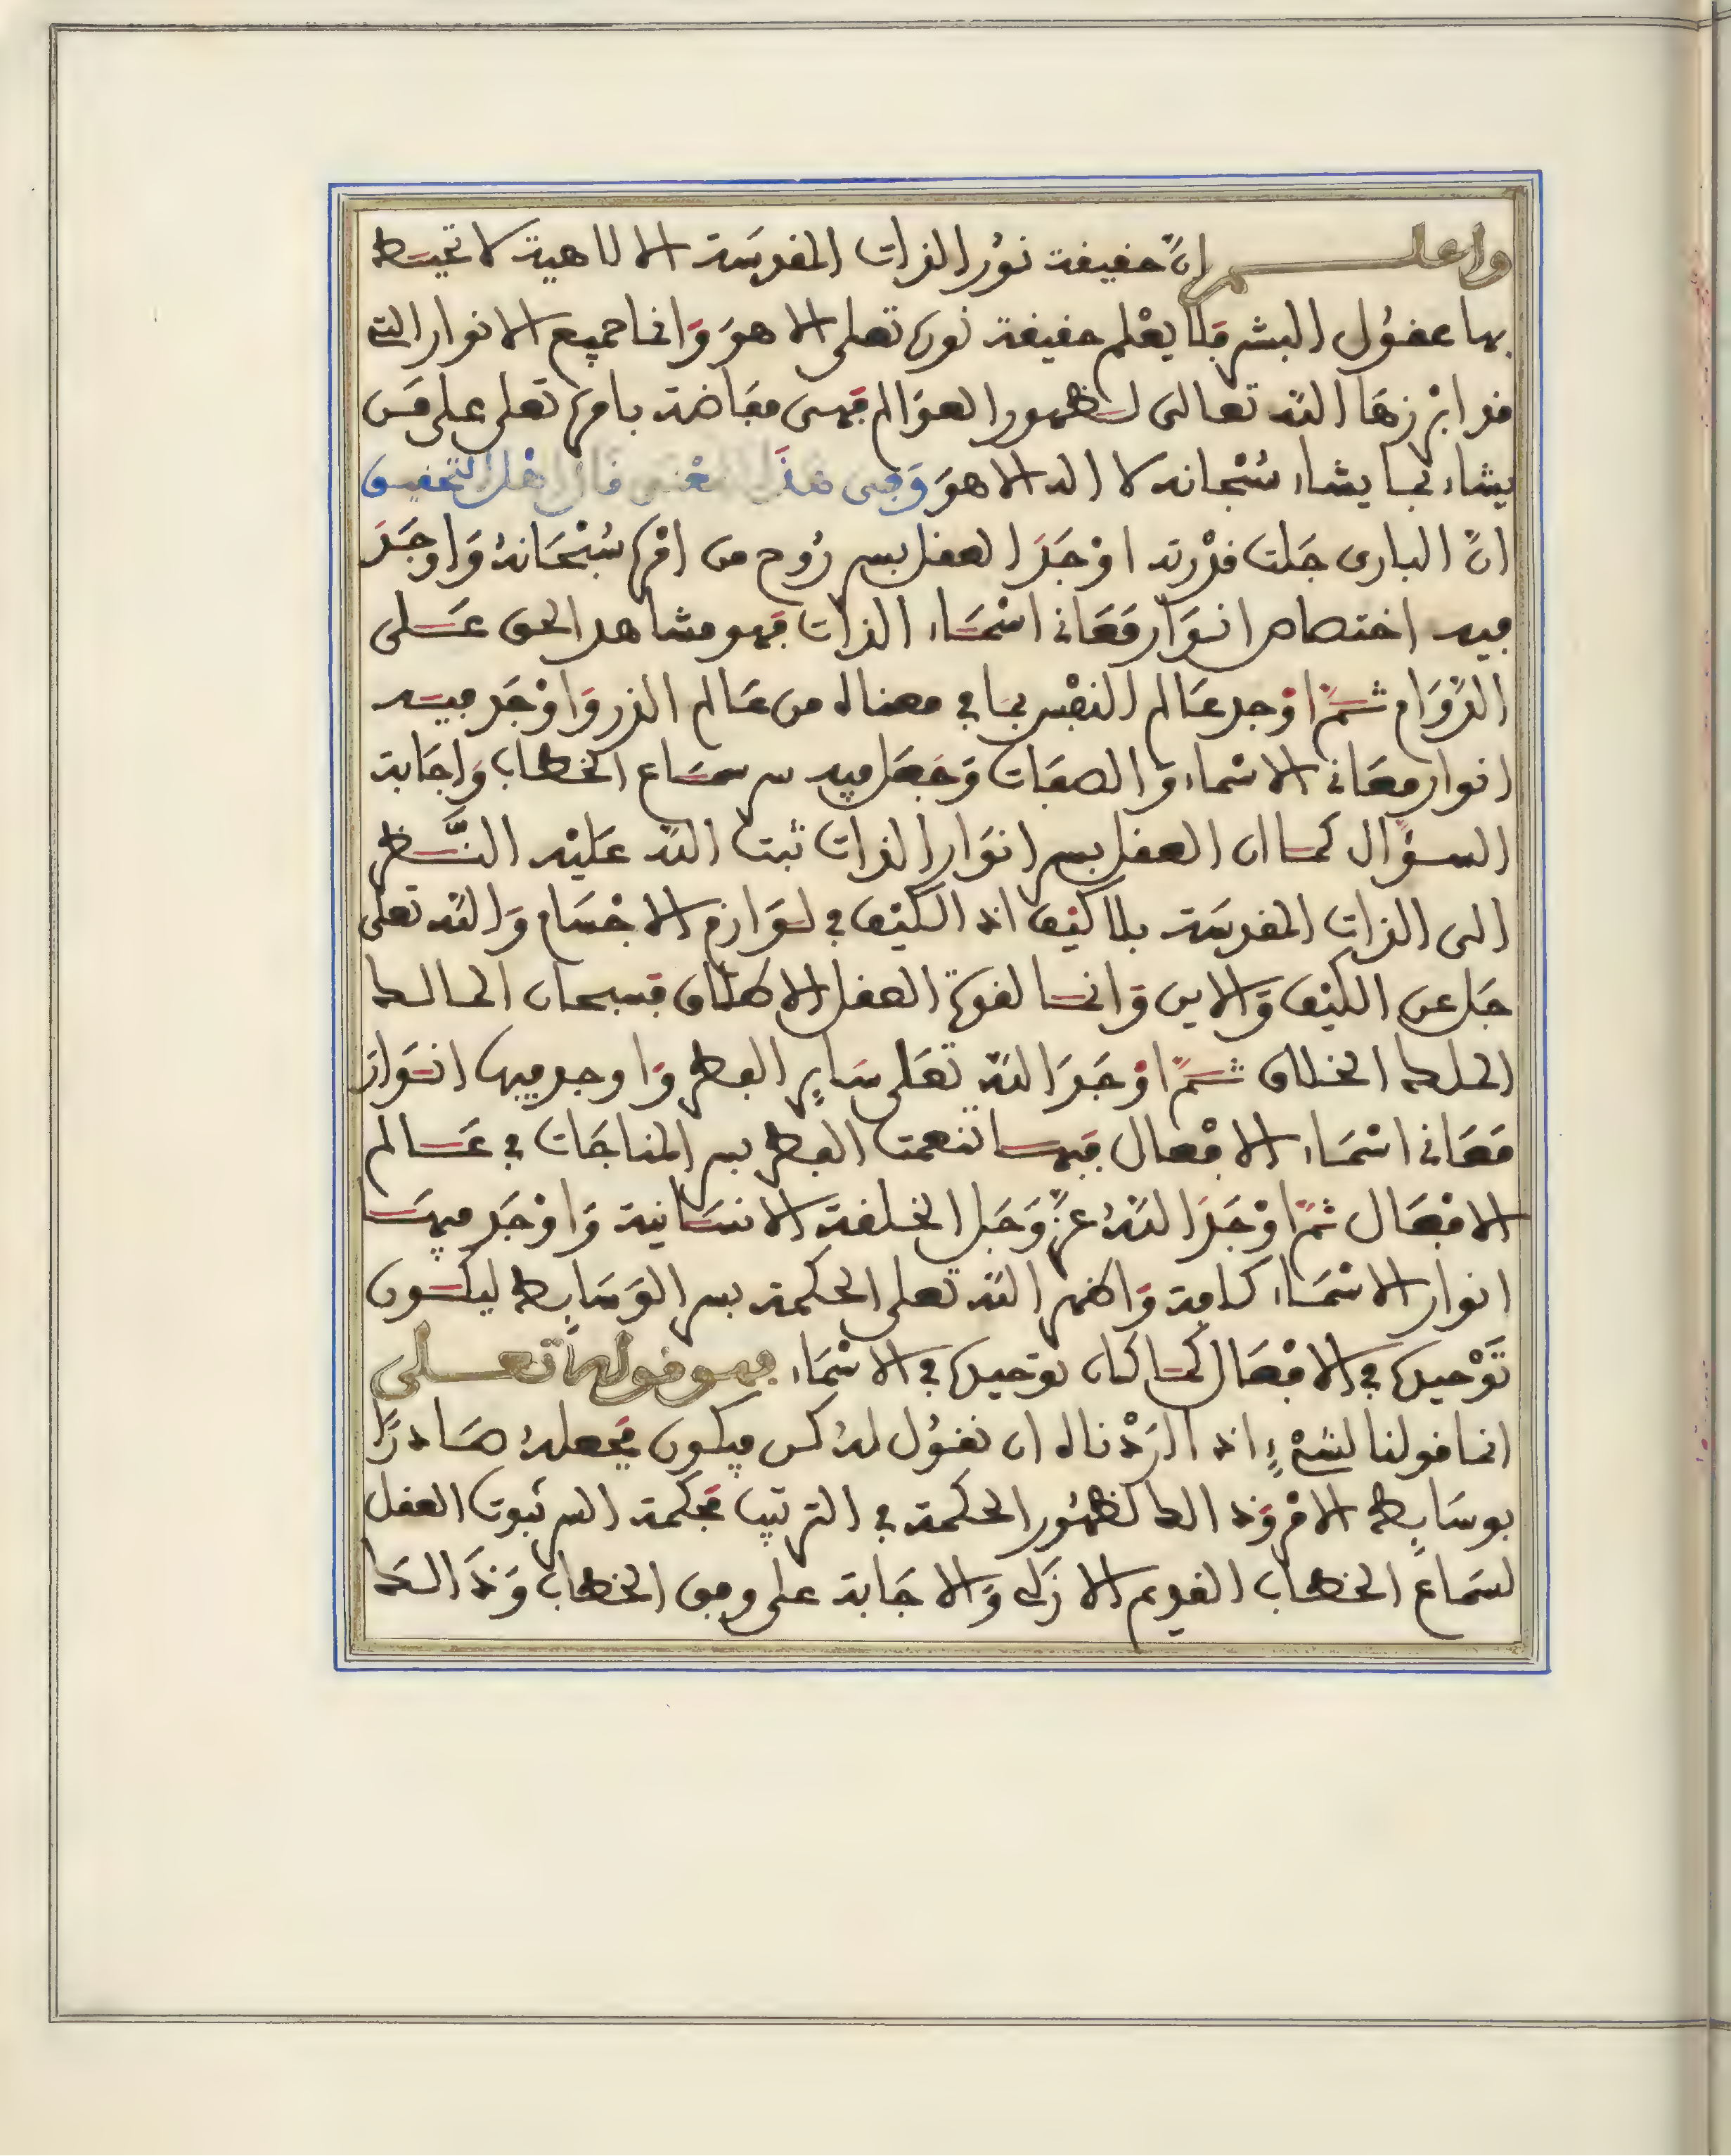 واعلم انّ حقيقة نُور الذات المقدسَة الالاهية لا تحيط
بها عقُول البشر فلا يعْلم حقيقة نوره تعلى الا هوَ وَانما جميع الانوار التي
قد ابْرزهَا اللّه تعالى لظهور العوَالم فهى مفَاضة بامره تعلى على مَن
يشاء بما يشاء سُبْحانه لا اله الا هوَ وَفى هَذَا المعْنى قال اهْل التحقيق
انّ البارى جَلت قدْرته اوْجَدَ العقل بسر رُوح من امْره سُبْحَانهُ وَاوجَدَ
فيه اختصاص انوَار مَعَانى اسْمَاء الذات فهو مشاهد الحق عَلى
الدَّوَام ثمّ اوْجد عَالم النفْس بمَا في معناه من عَالم الذر وَاوْجَد فيه
انوار معَانى الاسْماء وَالصفَات وَجَعَل فيه سر سمَاع الخطاب وَاجَابة
السؤَال كما ان العقل بسر انوَار الذات ثبت اللّه عَليْه النَّظر
الى الذات المقدسَة بلا كيْف اذ الكيْف في لوَازم الاجْسَام وَاللّه تعلى
جَل عن الكيْف وَالاين وَانما لقوة العقل الاطلاق فسبحان المالك
الملك الخلاق ثمّ اوْجَدَ اللّه تعَلى سَاير الفطر وَاوجد فيها انوَار
مَعَانى اسْمَاء الافْعال فبها تنعمت الفطر بسر المناجَات في عَالم
الافْعَال ثمّ اوْجَدَ اللّهُ عزّ وَجَل الخلقة الانسَانية وَاوْجَد فيهَا
انوار الاسْمَاء كامة وَاظهر اللّه تعلى الحكمة بسر الوَسَايط ليكون
تَوْحيده في الافْعَال كما كان توحيده في الاسْمَاء فهو قوله تعلى
انما قولنا لشيْءٍ اذا ارَدْناه ان نقُول لهُ كن فيكون فجعلهُ صَادرًا
بوسَايط الامْر وَذالك لظهُور الحكمة في الترتيب فحكمة السر ثبوت العقل
لسَماع الخطاب القديم الازَلى وَالاجَابة على وفق الخطاب وَذَالك